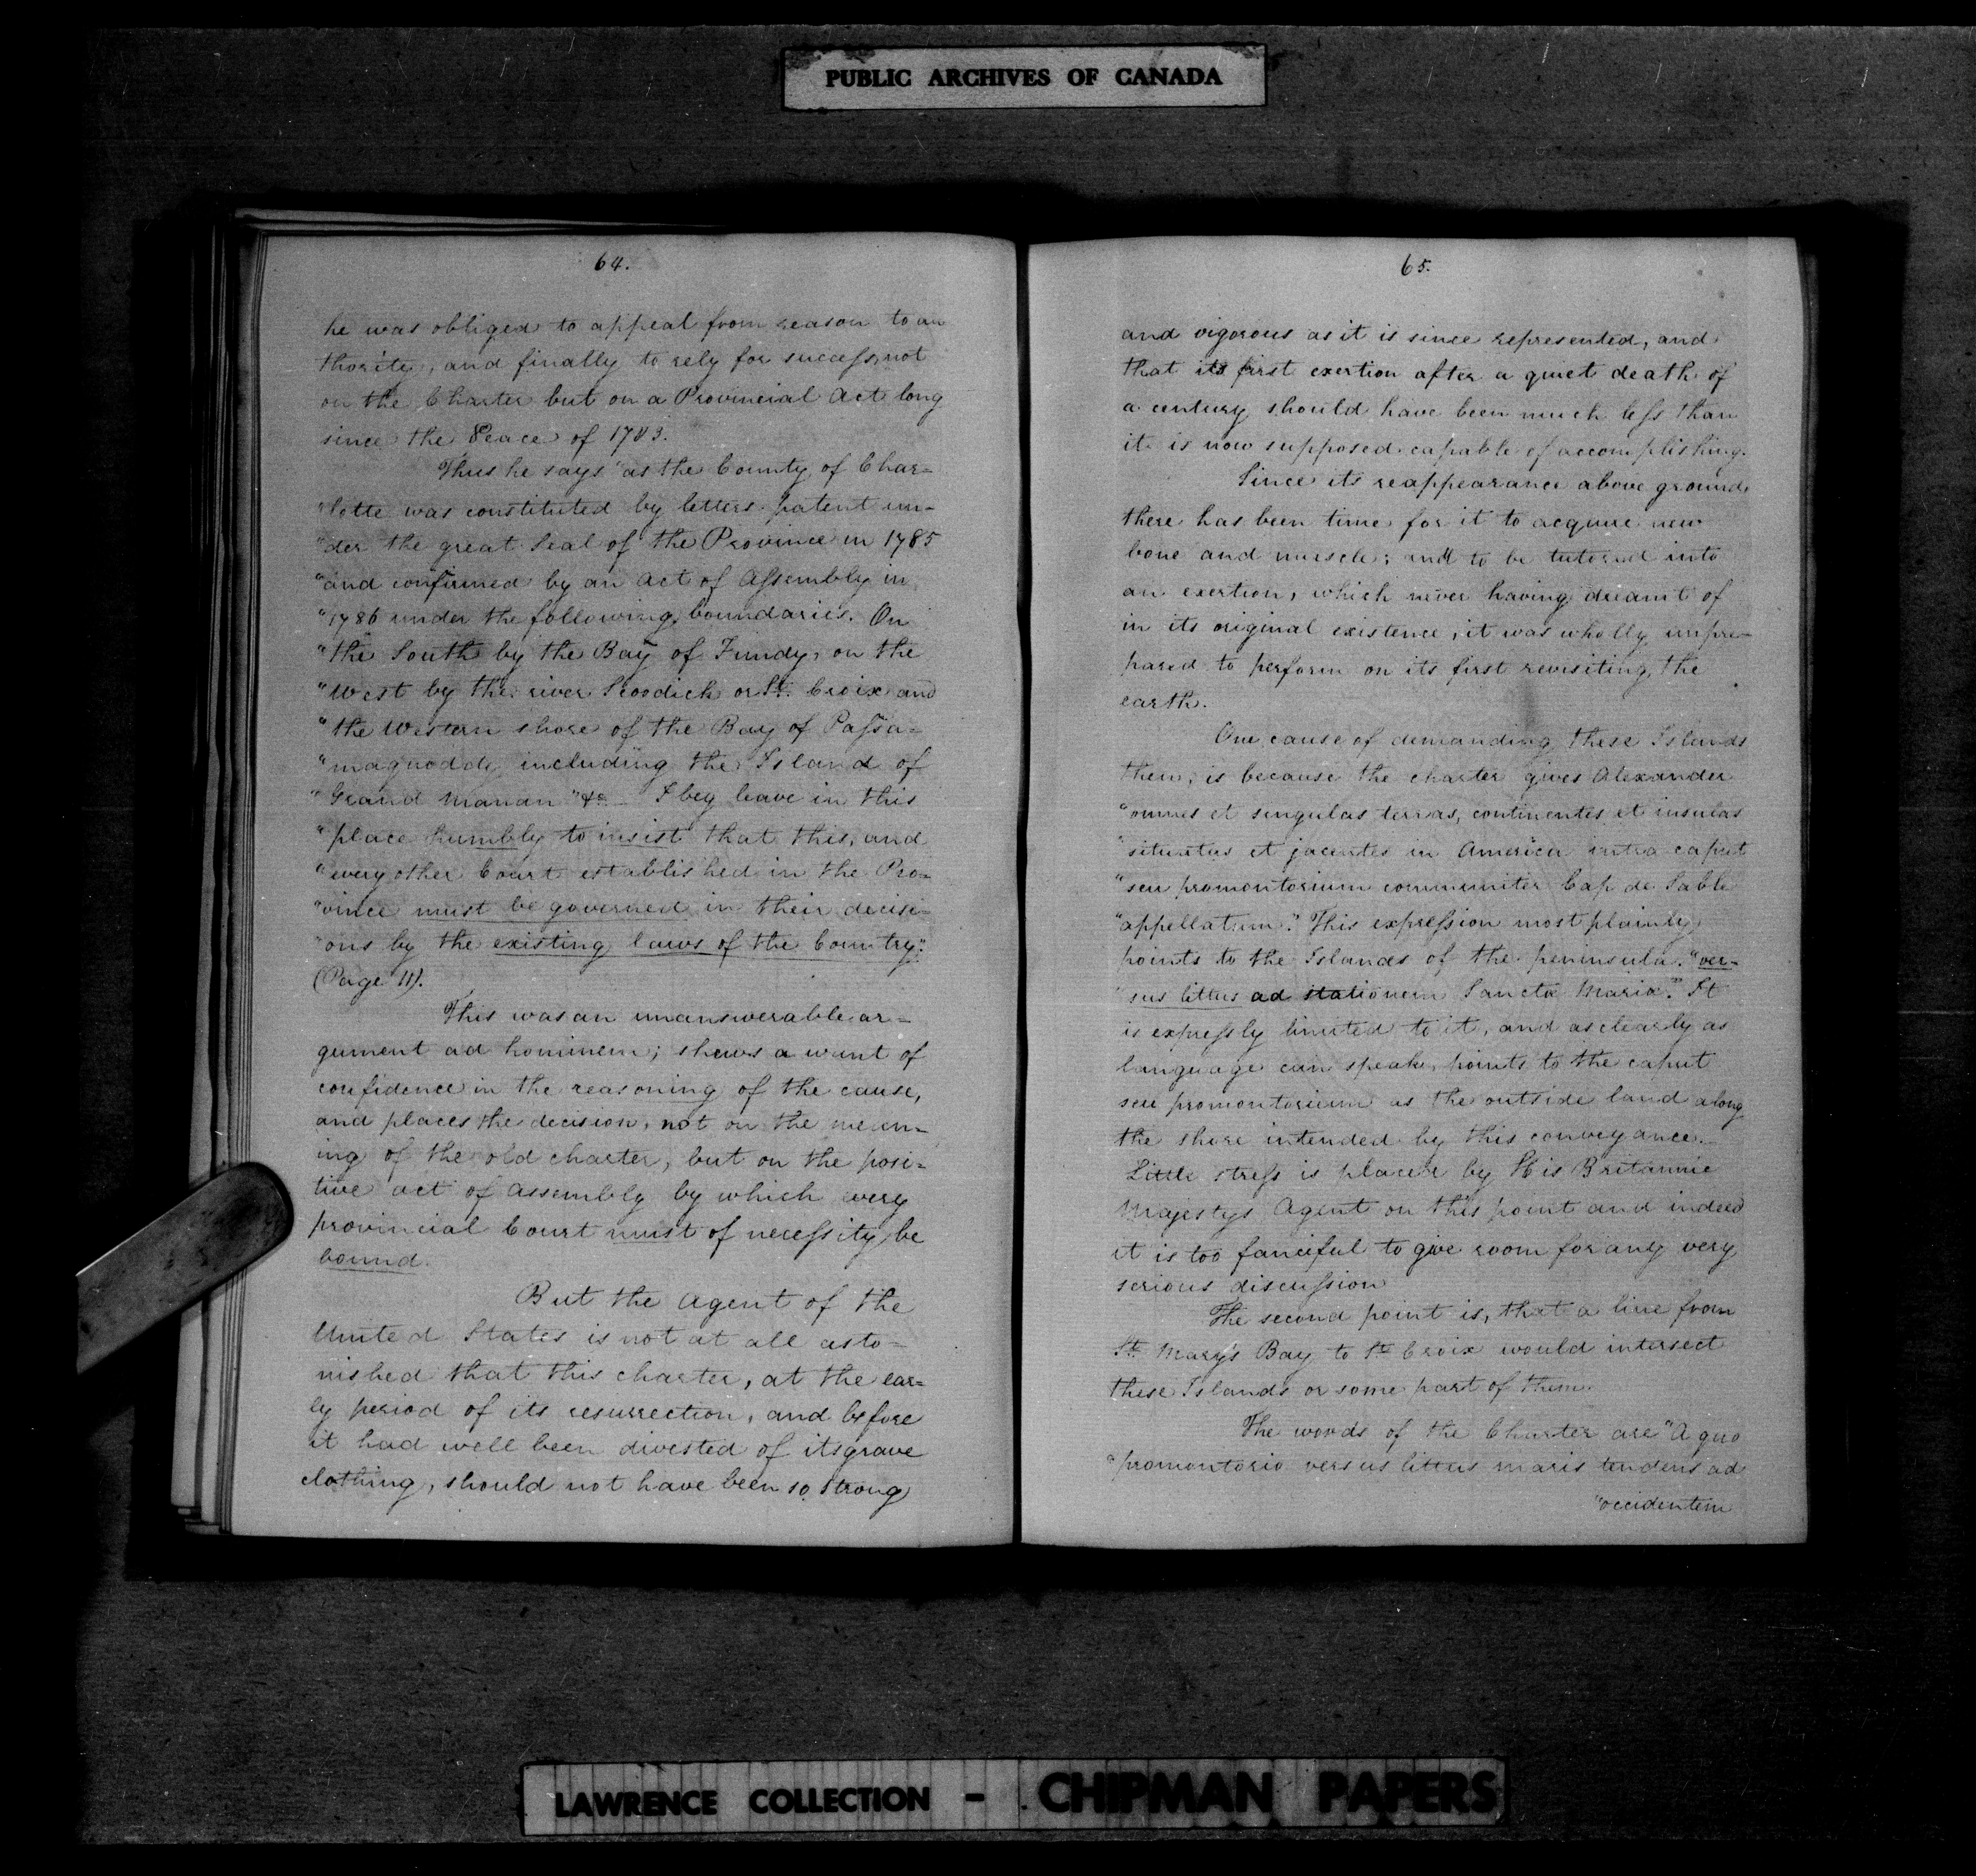 PUBLIC ARCHIVES OF CANADA
64.
he was obliged to appeal from reason to au
thority, and finally to rely for success, not
on the Charter but on a Provincial Act long
since the Peace of 1783.
Thus he says "as the County of Char=
"lotte was constituted by letters patent un-
"der the great Seal of the Province in 1785
"and confirmed by an Act of Assembly in
"1786 under the following boundaries. On
"the South by the Bay of Fundy, on the
"West by the river Scoodick or St. Croix and
"the Western shore of the Bay of Passa=
"maquoddy including the Island of
"Grand Manan "&c - I beg leave in this
"place humbly to insist that this, and
"every other Court established in the Pro-
"vince must be governed in their decisi-
"ons by the existing laws of the Country."
(Page 11).
This was an unanswerable ar=
gument ad hominem; shews a want of
confidence in the reasoning of the cause,
and places the decision, not on the mean-
ing of the old charter, but on the posi=
tive act of Assembly by which every
provincial Court must of necessity be
bound.
But the Agent of the
United States is not at all asto=
nished that this charter, at the ear=
ly period of its resurrection, and before
it had well been divested of its grave
clothing, should not have been so strong
65.
and vigorous as it is since represented, and
that its first exertion after a quiet death of
a century should have been much less than
it is now supposed capable of accomplishing.
Since its reappearance above ground
there has been time for it to acquire new
bone and muscle; and to be tutored into
an exertion, which never having dreamt of
in its original existence, it was wholly unpre-
pared to perform on its first revisiting the
earth.
One cause of demanding these Islands
then, is because the charter gives Alexander
"omnes et singulas terras, continentes et insulas
"situatas et jacentes in America intra caput
"seu promontorium communiter Cap de Sable
"appellatum." This expression most plainly
points to the Islands of the peninsula. "ver-
"sus littus ad stationem Sanctæ Mariæ." It
is expressly limited to it, and as clearly as
language can speak, points to the caput
seu promontorium as the outside land along
the shore intended by this conveyance.
Little stress is placed by His Britannic
Majestys Agent on this point and indeed
it is too fanciful to give room for any very
serious discussion
The second point is, that a line from
St. Mary's Bay to St. Croix would intersect
these Islands or some part of them.
The words of the Charter are "A quo
"promontorio versus littus maris tendens ad
"occidentem
LAWRENCE COLLECTION - CHIPMAN PAPERS